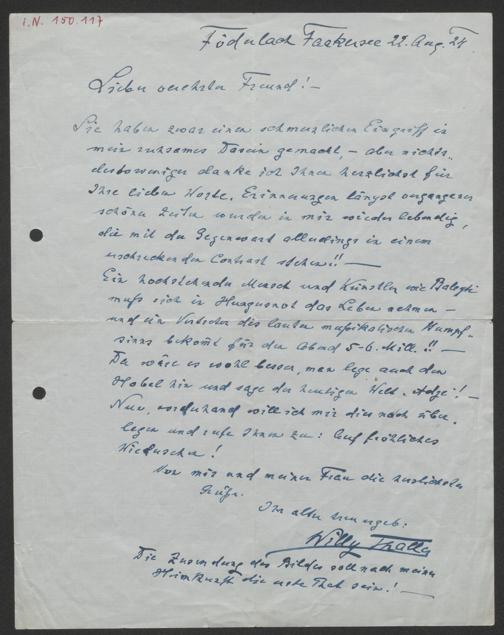 I.N. 150.117
Födnlach Faakersee 22. Aug. 24
Lieber verehrter Freund! –
Sie haben zwar einen schmerzlichen Eingriff in
mein ruhsames Dasein gemacht, – aber nichts-
destoweniger danke ich Ihnen herzlichst für
Ihre lieben Worte. Erinnerungen längst vergangener
schöner Zeiten wurden in mir wieder lebendig,
die mit der Gegenwart allerdings in einem
erschreckenden Contrast stehen!! —
Ein hochstehender Mensch und Künstler wie
muss sich in Hungersnot das Leben nehmen –
und ein Vertreter des lauten musikalischen Stumpf-
sinns bekomt für den Abend 5-6. Mill. !! —
Da wäre es wohl besser, man lege auch den
Hobel hin und sage der heutigen Welt Adje! –
Nun, vorderhand will ich mir dies noch über-
legen und rufe Ihnen zu: Auf fröhliches
Wiedersehen!
Von mir und meiner Frau die herzlichsten
Grüße.
Ihr alter treuergeb:
Willy Thaller
Die Zusendung des Bildes soll nach meiner
Heimkunft die erste That sein! —